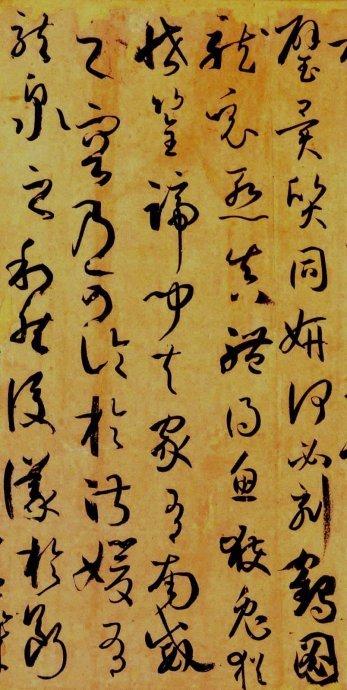 璧異質同妍何必刻鶴圖
龍竟慙真體得魚獲兔猶
恡筌蹄聞夫家有南威
之容乃可論於淑媛有
龍泉之利然後議於斷